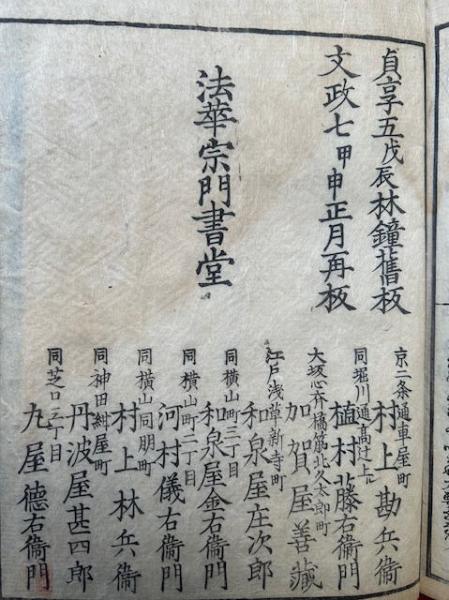 貞享五戊辰林鐘舊板
文政七甲申正月再板
法華宗門書堂
京二条通車屋町
村上勘兵衞
同堀川通高辻上ル
植村藤右衞門
大坂心斉橋筋北久太郎町
加賀屋善藏
江戸浅草新寺町
和泉屋庄次郎
同橫山町三丁目
和泉屋金右衞門
同橫山町二丁目
河村儀右衞門
同橫山同朋町
村上林兵衞
同神田紺屋町
丹波屋甚四郎
同芝口三丁目
丸屋德右衞門